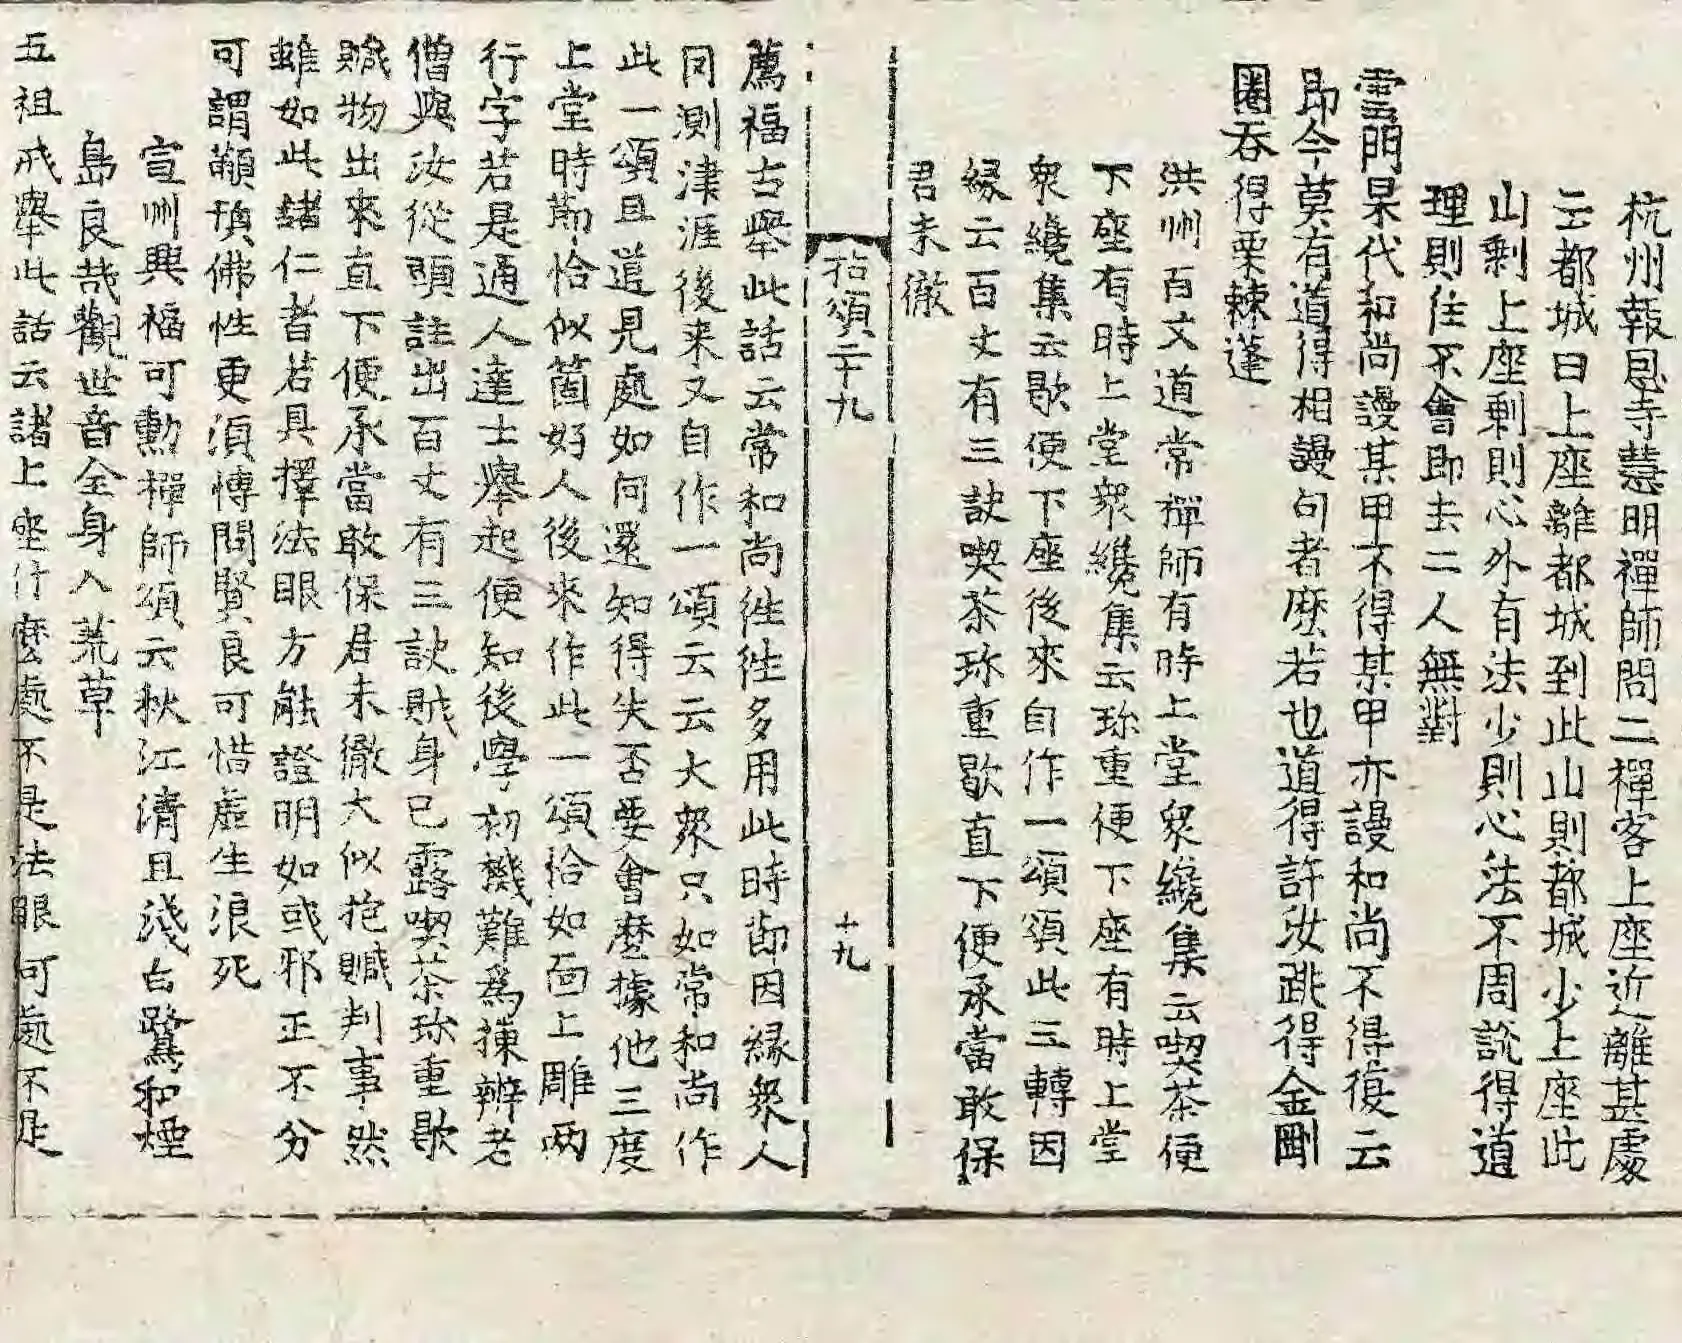 杭州報恩寺慧明禪師問二禪客上座近離甚處
云都城曰上座離都城到此山則都城少上座此
山剩上座剩則心外有法少則心法不周說得道
理則住不會即去二人無對
雲門杲代和尚謾某甲不得某甲亦謾和尚不得復云
即今莫有道得相謾句者麽若也道得許汝跳得金剛
圈吞得栗棘蓬
洪州百丈道常禪師有時上堂衆纔集云喫茶便
下座有時上堂衆纔集云珎重便下座有時上堂
衆纔集云歇便下座後來自作一頌頌此三轉因
緣云百丈有三訣喫茶珎重歇直下便承當敢保
君未徹
拈頌二十九
十九
薦福古舉此話云常和尚徃徃多用此時節因緣衆人
罔測津涯後来又自作一頌云云大衆只如常和尚作
此一頌且道見處如何還知得失否要會麽據他三度
上堂時節恰似箇好人後來作此一頌恰如面上雕兩
行字若是通人達士舉起便知後學初機難爲揀辨老
僧與汝從頭註出百丈有三訣賊身已露喫茶珎重歇
贓物出來直下便承當敢保君未徹大似抱贓判事然
雖如此諸仁者若具擇法眼方能證明如或邪正不分
可謂顢頇佛性更須博問賢良可惜虛生浪死
宣州興福可勳禪師頌云秋江清且淺白鷺和煙
島良哉觀世音全身入荒草
五祖戒舉此話云諸上座什麽處不是法眼何處不是